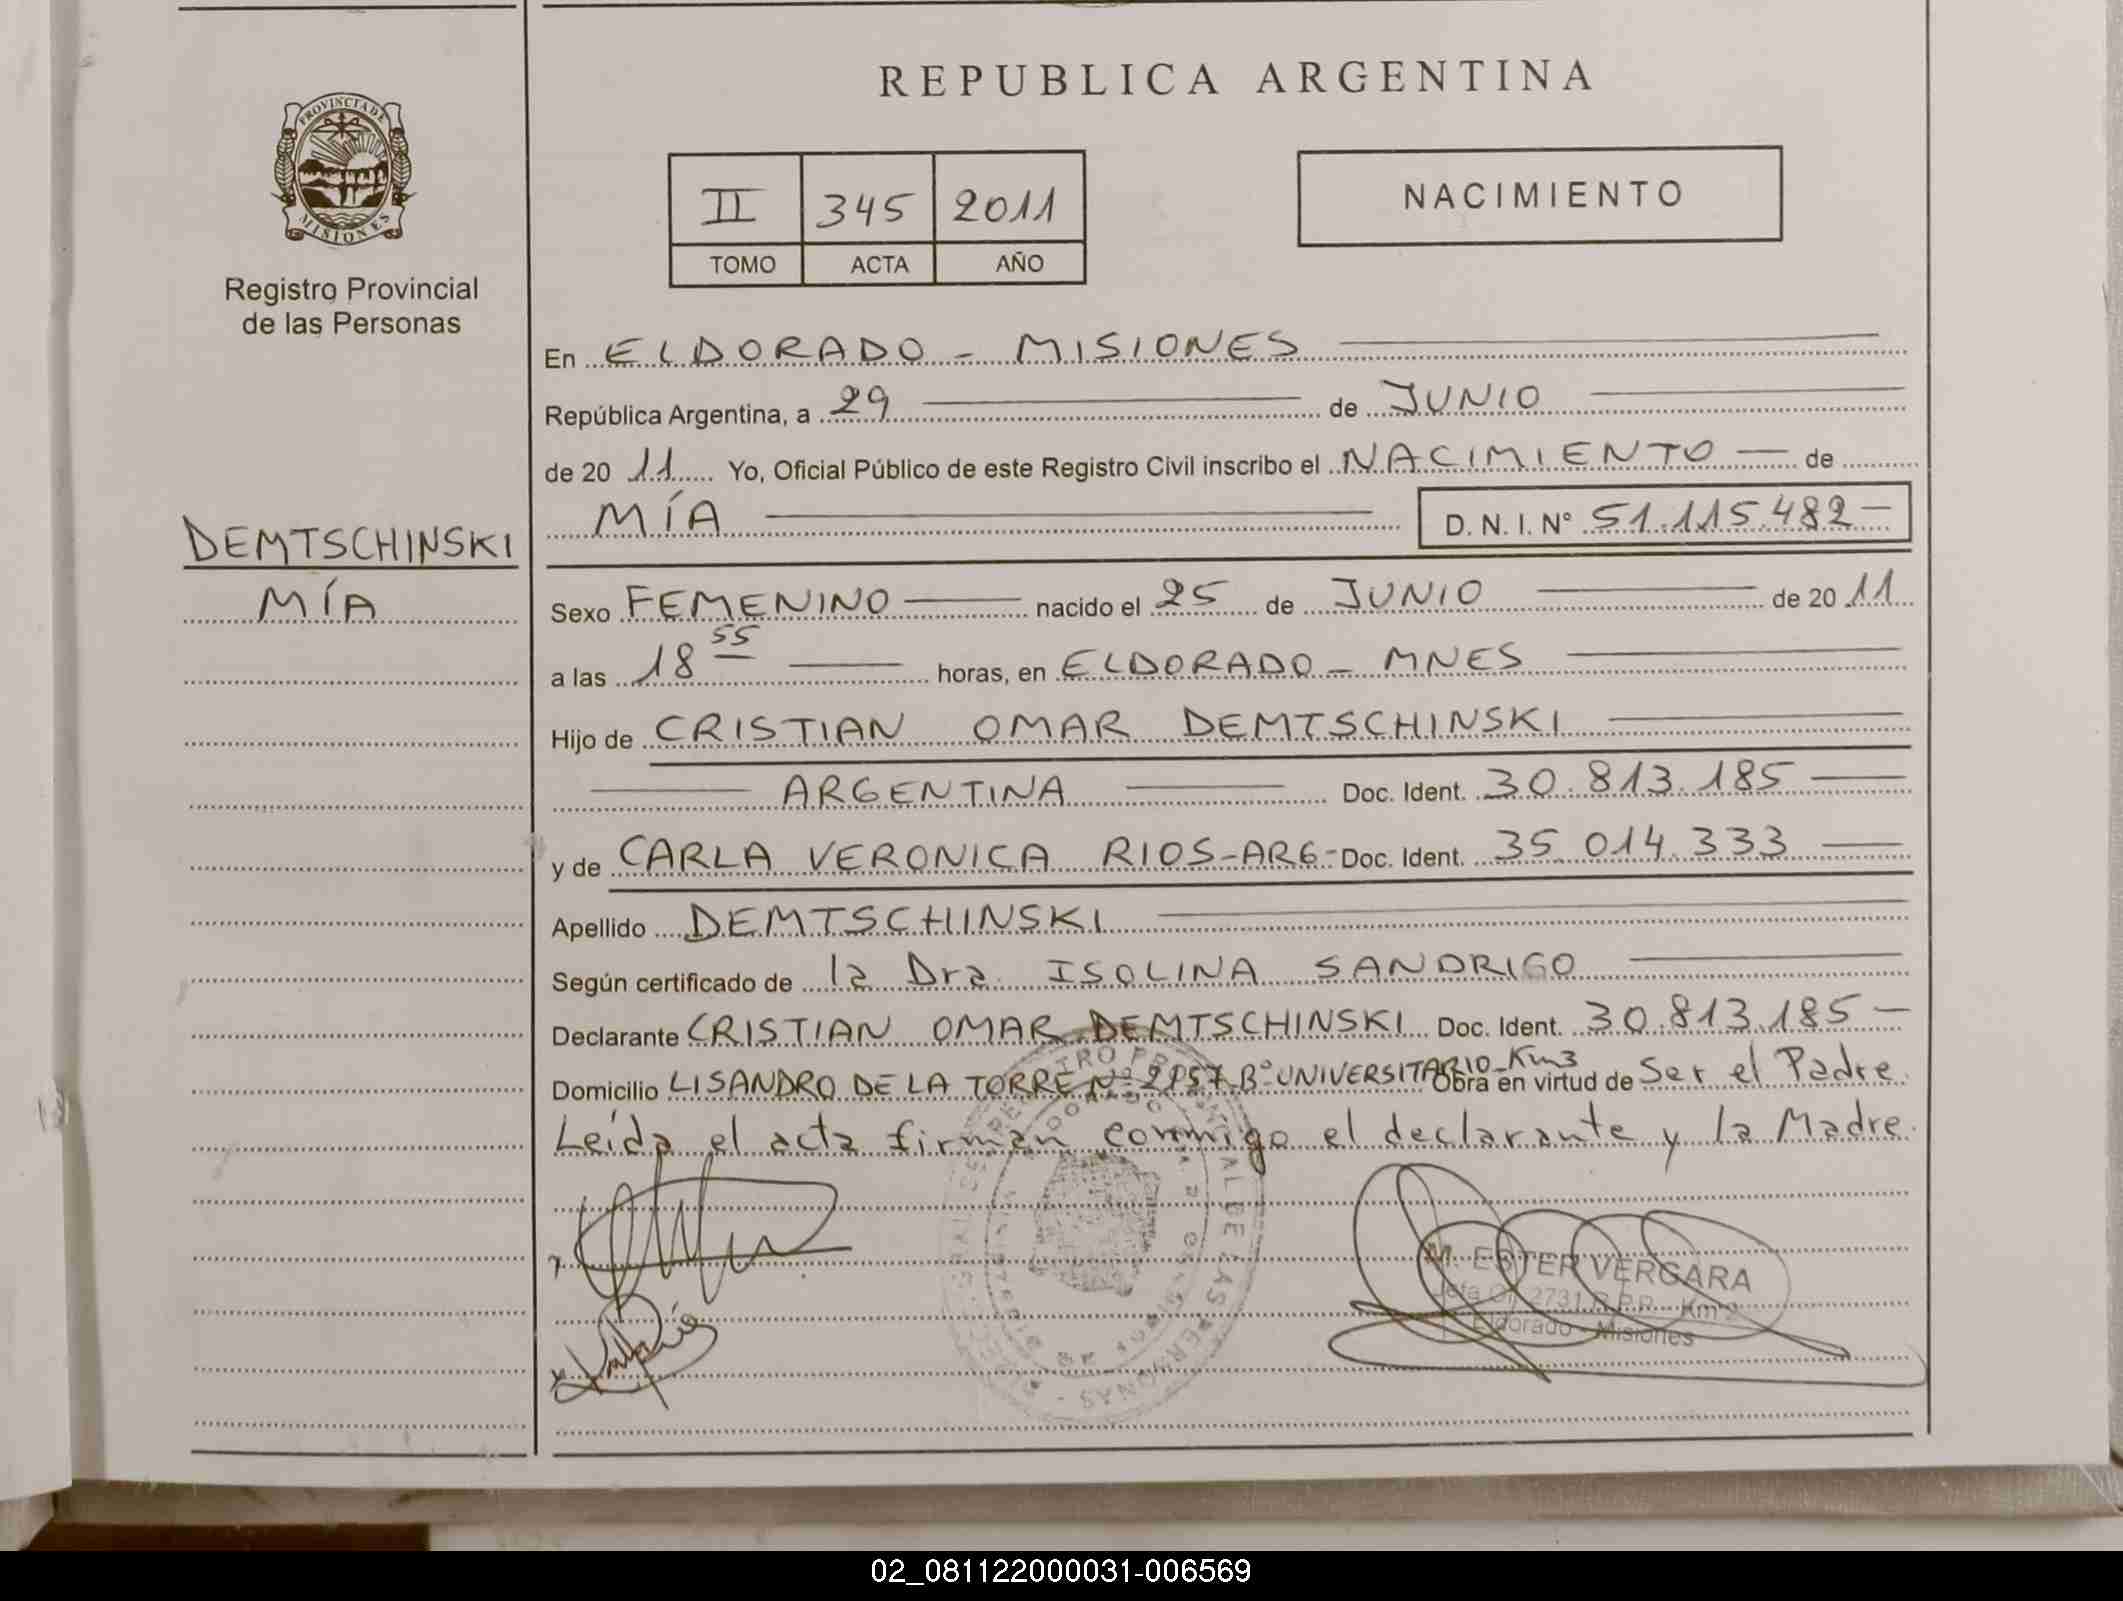 REPUBLICA ARGENTINA
PROVINCIA DE
MISIONES
Registro Provincial
de las Personas
II 345 2011
TOMO ACTA AÑO
NACIMIENTO
DEMTSCHINSKI
MÍA
En ELDORADO - MISIONES
República Argentina, a 29 de JUNIO
de 20 11 Yo, Oficial Público de este Registro Civil inscribo el NACIMIENTO — de
MÍA D. N. I. N° 51.115.482 —
Sexo FEMENINO nacido el 25 de JUNIO de 20 11
a las 18 55 horas, en ELDORADO - MNES
Hijo de CRISTIAN OMAR DEMTSCHINSKI
ARGENTINA Doc. Ident. 30.813.185
y de CARLA VERONICA RIOS-ARG- Doc. Ident. 35.014.333
Apellido DEMTSCHINSKI
Según certificado de la Dra. ISOLINA SANDRIGO
Declarante CRISTIAN OMAR DEMTSCHINSKI Doc. Ident. 30.813.185 —
Domicilio LISANDRO DE LA TORRE Nº 2157 Bº UNIVERSITARIO-Km3 Obra en virtud de Ser el Padre
Leída el acta firman conmigo el declarante y la Madre.
M. ESTER VERGARA
Jefa Of. 2731 R.P.P. - Km 2
Eldorado - Misiones
02_081122000031-006569